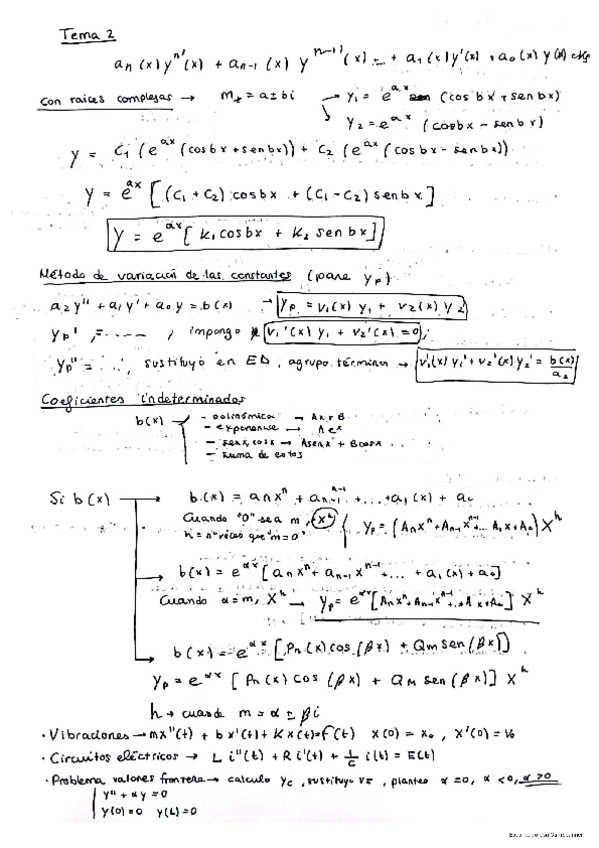 Tema 2
aₙ(x)yⁿ'(x) + aₙ₋₁(x) yⁿ⁻¹'(x) … + a₁(x)y'(x) + a₀(x) y(x)
Con raices complejas → m± = a±bi → y₁ = e^{ax} (cos bx + sen bx)
y₂ = e^{ax} (cosbx − sen bx)
y = C₁(e^{ax}(cosbx + senbx)) + C₂ (e^{ax}(cosbx − senbx))
y = e^{ax} [(C₁ + C₂) cosbx + (C₁ − C₂) senbx]
y = e^{ax} [K₁ cosbx + K₂ senbx]
Método de variación de las constantes (para yp)
a₂y'' + a₁y' + a₀y = b(x) → yp = v₁(x) y₁ + v₂(x) y₂
yp' = ....., impongo v₁'(x) y₁ + v₂'(x) y₂ = 0;
yp'' = ..., sustituyo en ED, agrupo términos → v₁'(x) y₁' + v₂'(x) y₂' = b(x)/a₂
Coeficientes indeterminados
b(x)
- polinómica → Ax + B
- exponencial → Ae^x
- senx, cosx → Asenx + Bcosx
- suma de estos
Si b(x) → b(x) = aₙxⁿ + aₙ₋₁x^{n-1} + ... + a₁(x) + a₀
Cuando "0" sea m, x^h
h = nº veces que "m=0"
yp = (Aₙxⁿ + Aₙ₋₁x^{n-1} + ... A₁x + A₀) x^h
→ b(x) = e^{αx} [aₙxⁿ + aₙ₋₁x^{n-1} + ... + a₁(x) + a₀]
Cuando α = m, x^h → yp = e^{αx} [Aₙxⁿ + Aₙ₋₁x^{n-1} + ... + A₁x + A₀] x^h
→ b(x) = e^{αx} [Pn(x) cos(βx) + Qm sen(βx)]
yp = e^{αx} [Pn(x) cos(βx) + Qm sen(βx)] x^h
h → cuando m = α ± βi
· Vibraciones → mx''(t) + bx'(t) + Kx(t) = f(t) x(0) = x₀, x'(0) = v₀
· Circuitos eléctricos → L i''(t) + R i'(t) + 1/C i(t) = E(t)
· Problema valores frontera → calculo yc, sustituyo VF, planteo α = 0, α < 0, α > 0
y'' + αy = 0
y(0) = 0 y(L) = 0